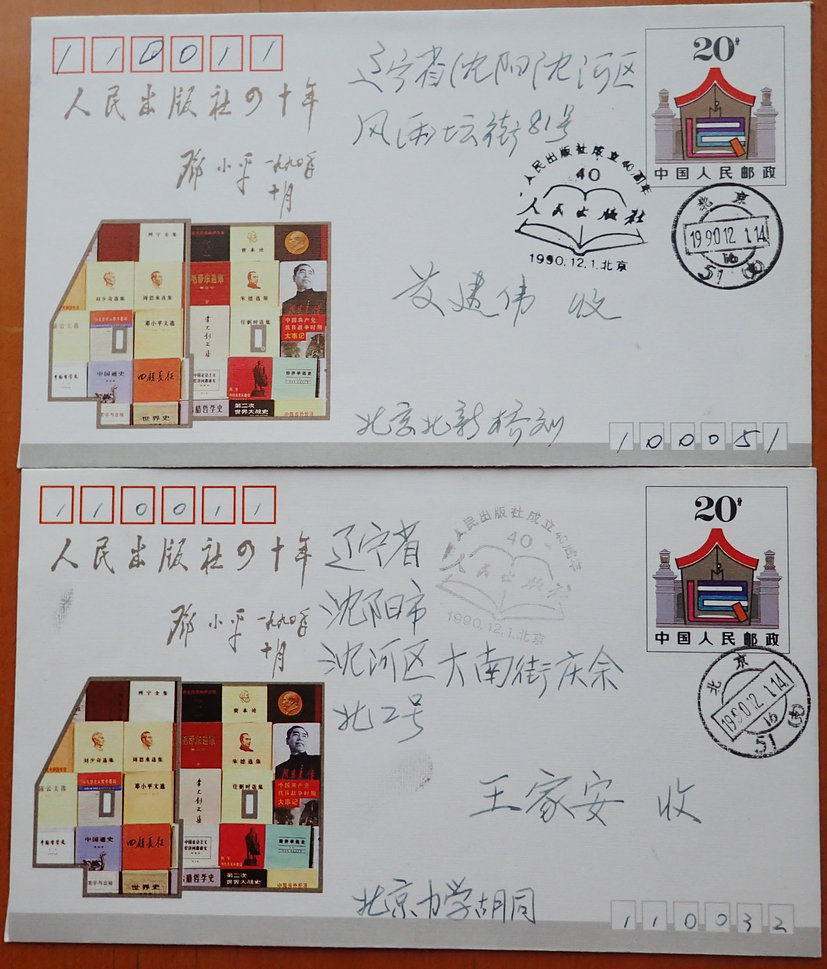 110011
辽宁省沈阳沈河区
风雨坛街81号
20分
中国人民邮政
人民出版社四十年
邓小平 一九九〇年
十月
人民出版社成立40周年
40
人民出版社
1990.12.1.北京
北京
1990.12.1.14
16
51(支)
建伟 收
列宁全集
资本论
刘少奇选集
周恩来选集
毛泽东选集
朱德选集
邓小平文选
李大钊文集
任弼时选集
中国共产党
抗日战争时期
大事记
中国通史
四旋长征
世界史
腊哲学史
第二次
世界大战史
北京北新桥
100051
110011
辽宁省
沈阳市
沈河区大南街庆余
北2号
20分
中国人民邮政
人民出版社四十年
邓小平 一九九〇年
十月
人民出版社成立40周年
40
人民出版社
1990.12.1.北京
北京
1990.12.1.14
16
51(支)
王家安 收
列宁全集
资本论
刘少奇选集
周恩来选集
毛泽东选集
朱德选集
邓小平文选
李大钊文集
任弼时选集
中国共产党
抗日战争时期
大事记
中国通史
世界史
腊哲学史
第二次
世界大战史
北京力学胡同
110032